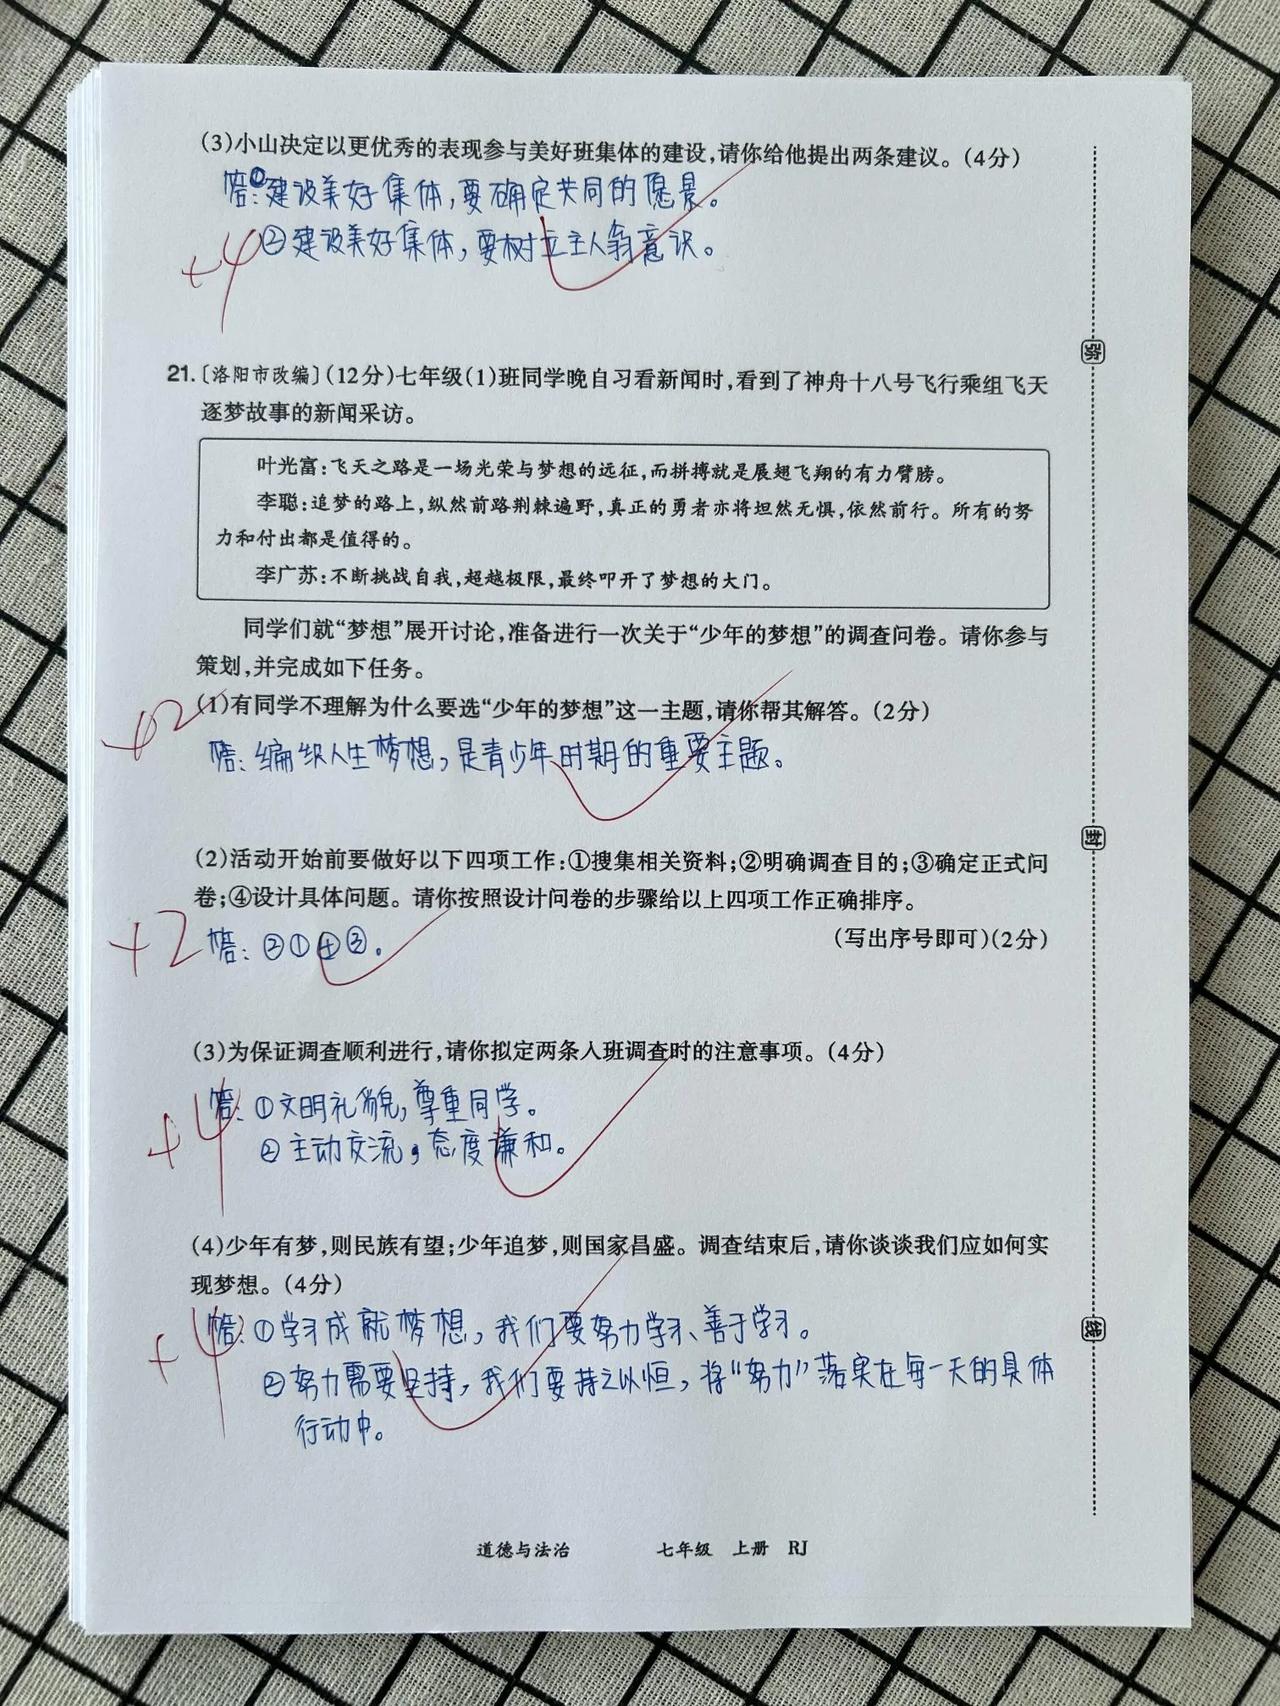 (3)小山决定以更优秀的表现参与美好班集体的建设,请你给他提出两条建议。(4分)
答:①建设美好集体,要确定共同的愿景。
+4 ②建设美好集体,要树立主人翁意识。
21.〔洛阳市改编〕(12分)七年级(1)班同学晚自习看新闻时,看到了神舟十八号飞行乘组飞天
逐梦故事的新闻采访。
叶光富:飞天之路是一场光荣与梦想的远征,而拼搏就是展翅飞翔的有力臂膀。
李聪:追梦的路上,纵然前路荆棘遍野,真正的勇者亦将坦然无惧,依然前行。所有的努
力和付出都是值得的。
李广苏:不断挑战自我,超越极限,最终叩开了梦想的大门。
同学们就“梦想”展开讨论,准备进行一次关于“少年的梦想”的调查问卷。请你参与
策划,并完成如下任务。
+2 (1)有同学不理解为什么要选“少年的梦想”这一主题,请你帮其解答。(2分)
答:编织人生梦想,是青少年时期的重要主题。
(2)活动开始前要做好以下四项工作:①搜集相关资料;②明确调查目的;③确定正式问
卷;④设计具体问题。请你按照设计问卷的步骤给以上四项工作正确排序。
(写出序号即可)(2分)
+2 答:②①④③。
(3)为保证调查顺利进行,请你拟定两条入班调查时的注意事项。(4分)
+4 答:①文明礼貌,尊重同学。
②主动交流,态度谦和。
(4)少年有梦,则民族有望;少年追梦,则国家昌盛。调查结束后,请你谈谈我们应如何实
现梦想。(4分)
+4 答:①学习成就梦想,我们要努力学习、善于学习。
②努力需要坚持,我们要持之以恒,将“努力”落实在每一天的具体
行动中。
弥
封
线
道德与法治 七年级 上册 RJ